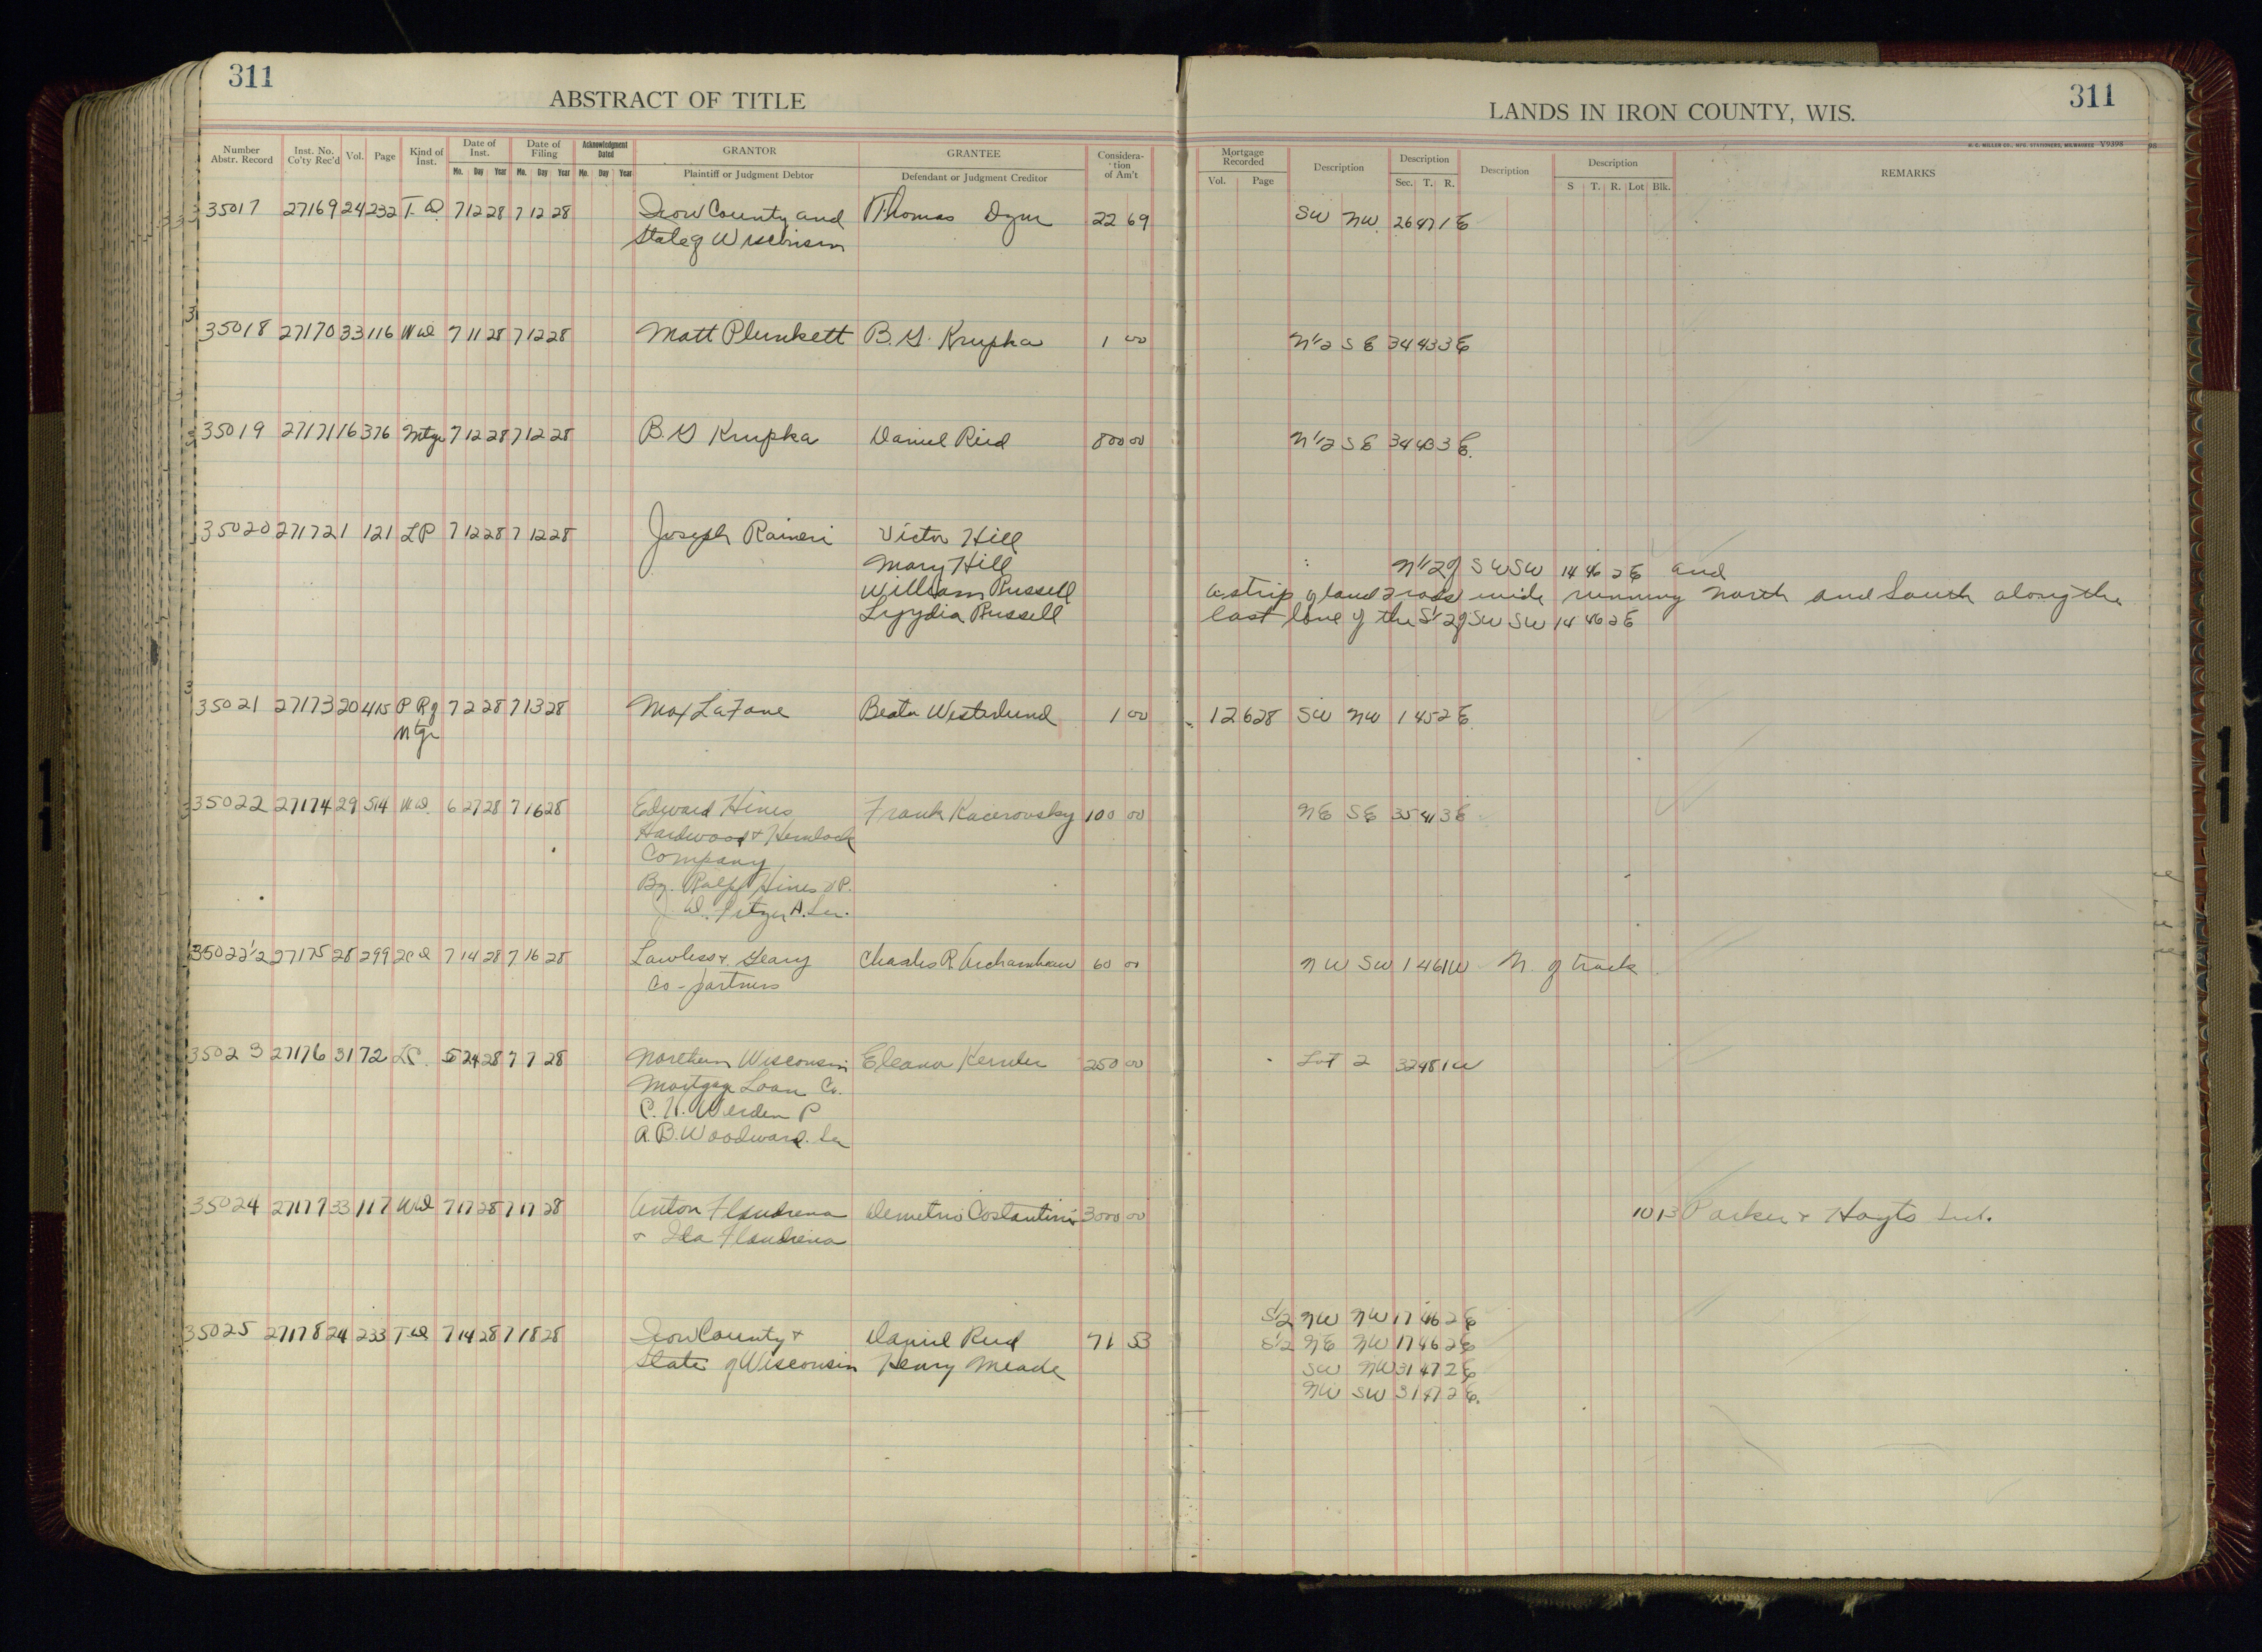 311
ABSTRACT OF TITLE
LANDS IN IRON COUNTY, WIS.
311
Number Abstr. Record Inst. No. Co'ty Rec'd Vol. Page Kind of Inst. Date of Inst. Mo. Day Year Date of Filing Mo. Day Year Acknowledgment Dated Mo. Day Year GRANTOR Plaintiff or Judgment Debtor GRANTEE Defendant or Judgment Creditor Considera-tion of Am't
Mortgage Recorded Vol. Page Description Description Sec. T. R. Description Description S T. R. Lot Blk. REMARKS
H. C. MILLER CO., MFG. STATIONERS, MILWAUKEE V9398
35017 27169 24 232 T. D. 7 12 28 7 12 28 Iron County and Thomas 22 69 SW NW 26 47 1 E
State of Wisconsin
35018 27170 33 116 WD 7 11 28 7 12 28 Matt Plunkett B. G. Krupka 1 00 N 1/2 S E 34 43 3 E
35019 27171 16 376 Mtge 7 12 28 7 12 28 B. G Krupka Daniel Reid 800 00 N 1/2 S E 34 43 3 E.
35020 27172 1 121 LP 7 12 28 7 12 28 Joseph Raineri Victor Hill
Mary Hill N 1/2 of SW SW 14 46 2 E and
William Russell a strip of land 2 rods wide running North and South along the
Lyydia Russell east line of the S 1/2 of SW SW 14 46 2 E
35021 27173 20 415 P Rg 7 2 28 7 13 28 Max LaFave Beata Westerlund 1 00 12 628 SW NW 1 45 2 E
Mtge
35022 27174 29 514 WD. 6 27 28 7 16 28 Edward Hines Frank Kacerovsky 100 00 NE SE 35 41 3 E
Hardwood & Hemlock
Company
By. Ralph Hines VP.
J. W. Pitzer A. Sec.
35022 1/2 27175 28 299 2CD 7 14 28 7 16 28 Lawless & Geary Charles R. Archambeau 60 00 NW SW 1 46 1 W N. of track
Co-partners
35023 27176 31 72 LC. 5 24 28 7 7 28 Northern Wisconsin Eleanor 250 00 Lot 2 32 48 1 W
Mortgage Loan Co.
C. H. Werden P
A. B. Woodward. Sec
35024 27177 33 117 WD 7 17 28 7 17 28 Anton Flandrena Demetrio Costantini 3000 00 10 13 Parker & Hoyts Sub.
& Ida Flandrena
S 1/2 NW NW 17 46 2 E
35025 27178 24 233 T D 7 14 28 7 18 28 Iron County & Daniel Reid 71 53 S 1/2 NE NW 17 46 2 E
State of Wisconsin Henry Meade SW NW 31 47 2 E
NW SW 31 47 2 E.